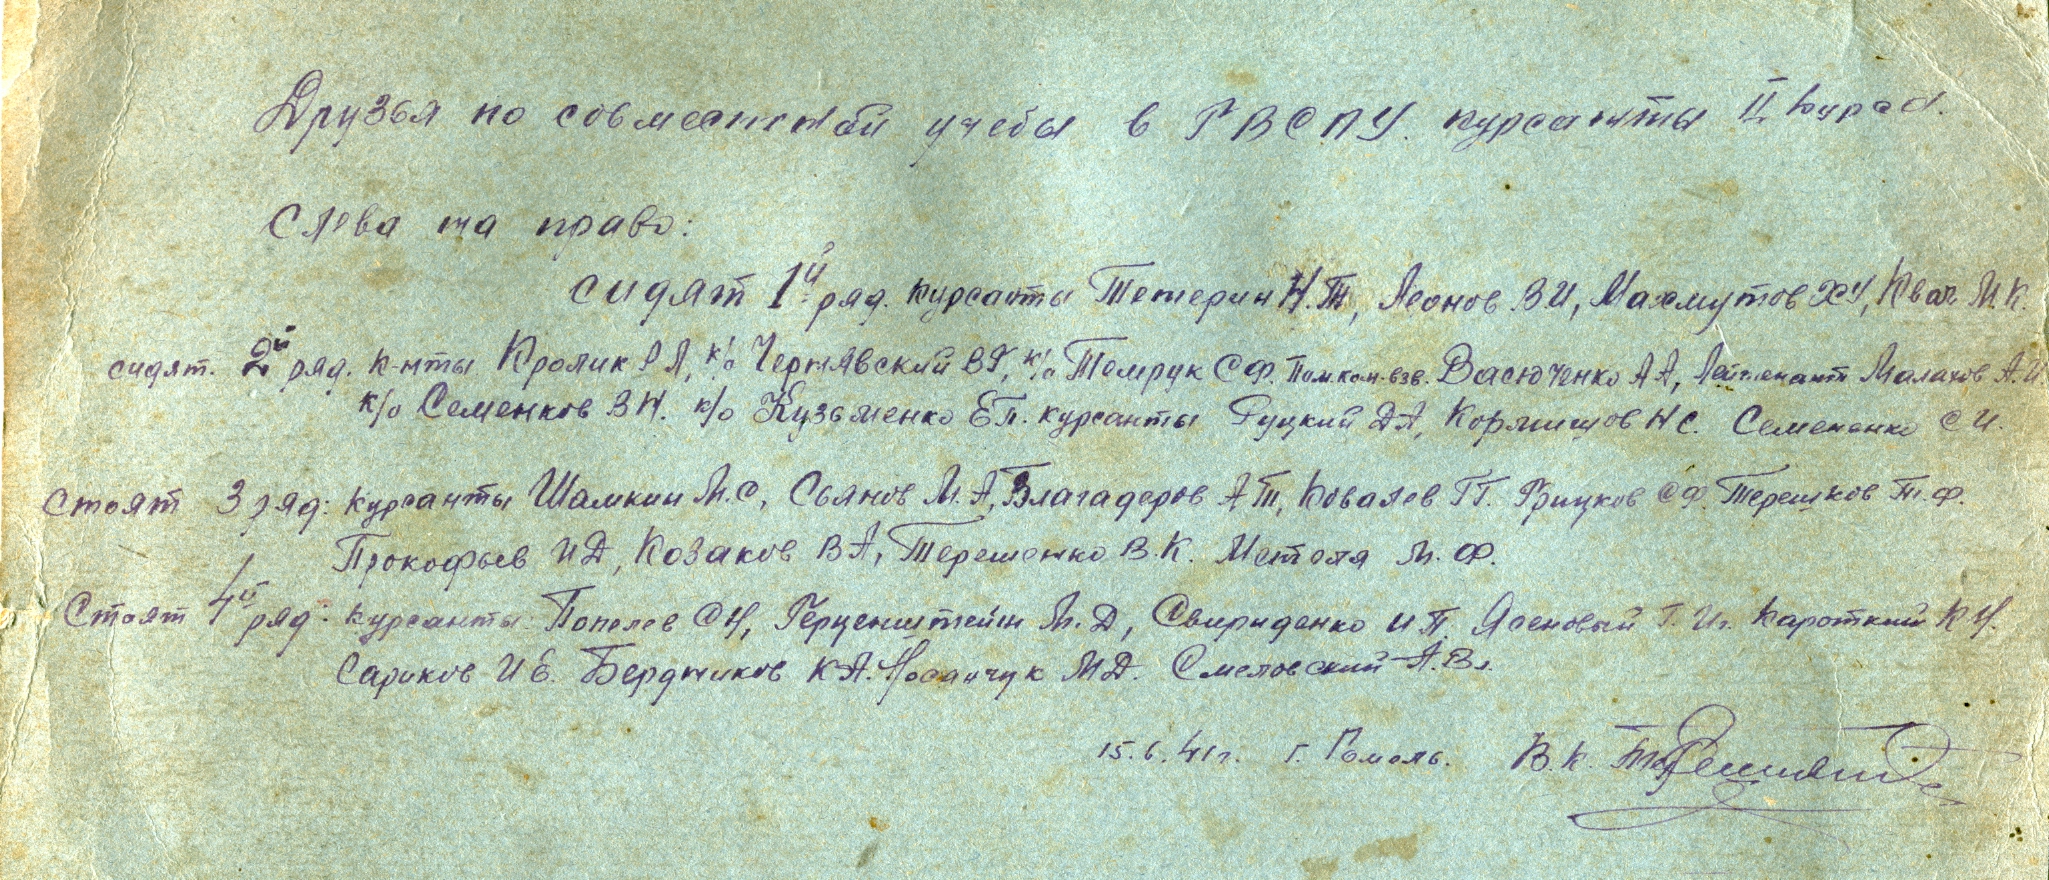 Друзья по совместной учебы в ГВСПУ. курсанты II курса.
Слева на право:
сидят 1й ряд. курсанты Тетерин Н.Т, Леонов В.И, Махмутов ХУ, Квач М.К.
сидят. 2й ряд. К-нты Кролик РЛ, к/о Чернявский ВГ, к/о Темрук С Ф. Помком.взв. Васюченко А А, Лейтенант Малахов А.И
к/о Семенков В Н. к/о Кузьменко Е П. курсанты Руцкий Д А, Кормишов Н С. Семененко С И.
Стоят 3 ряд: курсанты Шамкин М.С, Сьянов М.А, Благадеров А Т, Ковалев Г Г. Грицков С Ф. Терешков Т.Ф.
Прокофьев И Д, Козаков В А, Терешенко В.К. Метеля М. Ф.
Стоят 4й ряд: курсанты: Попелев С Н, Герценштейн М. Д, Свириденко И П. Ясеновый Г. Иг. Кароткий К Н.
Сариков И Е. Бердников К А. Мосанчук М Д. Смеловский А. Вл.
15.6.41г. г. Гомель. В. К.